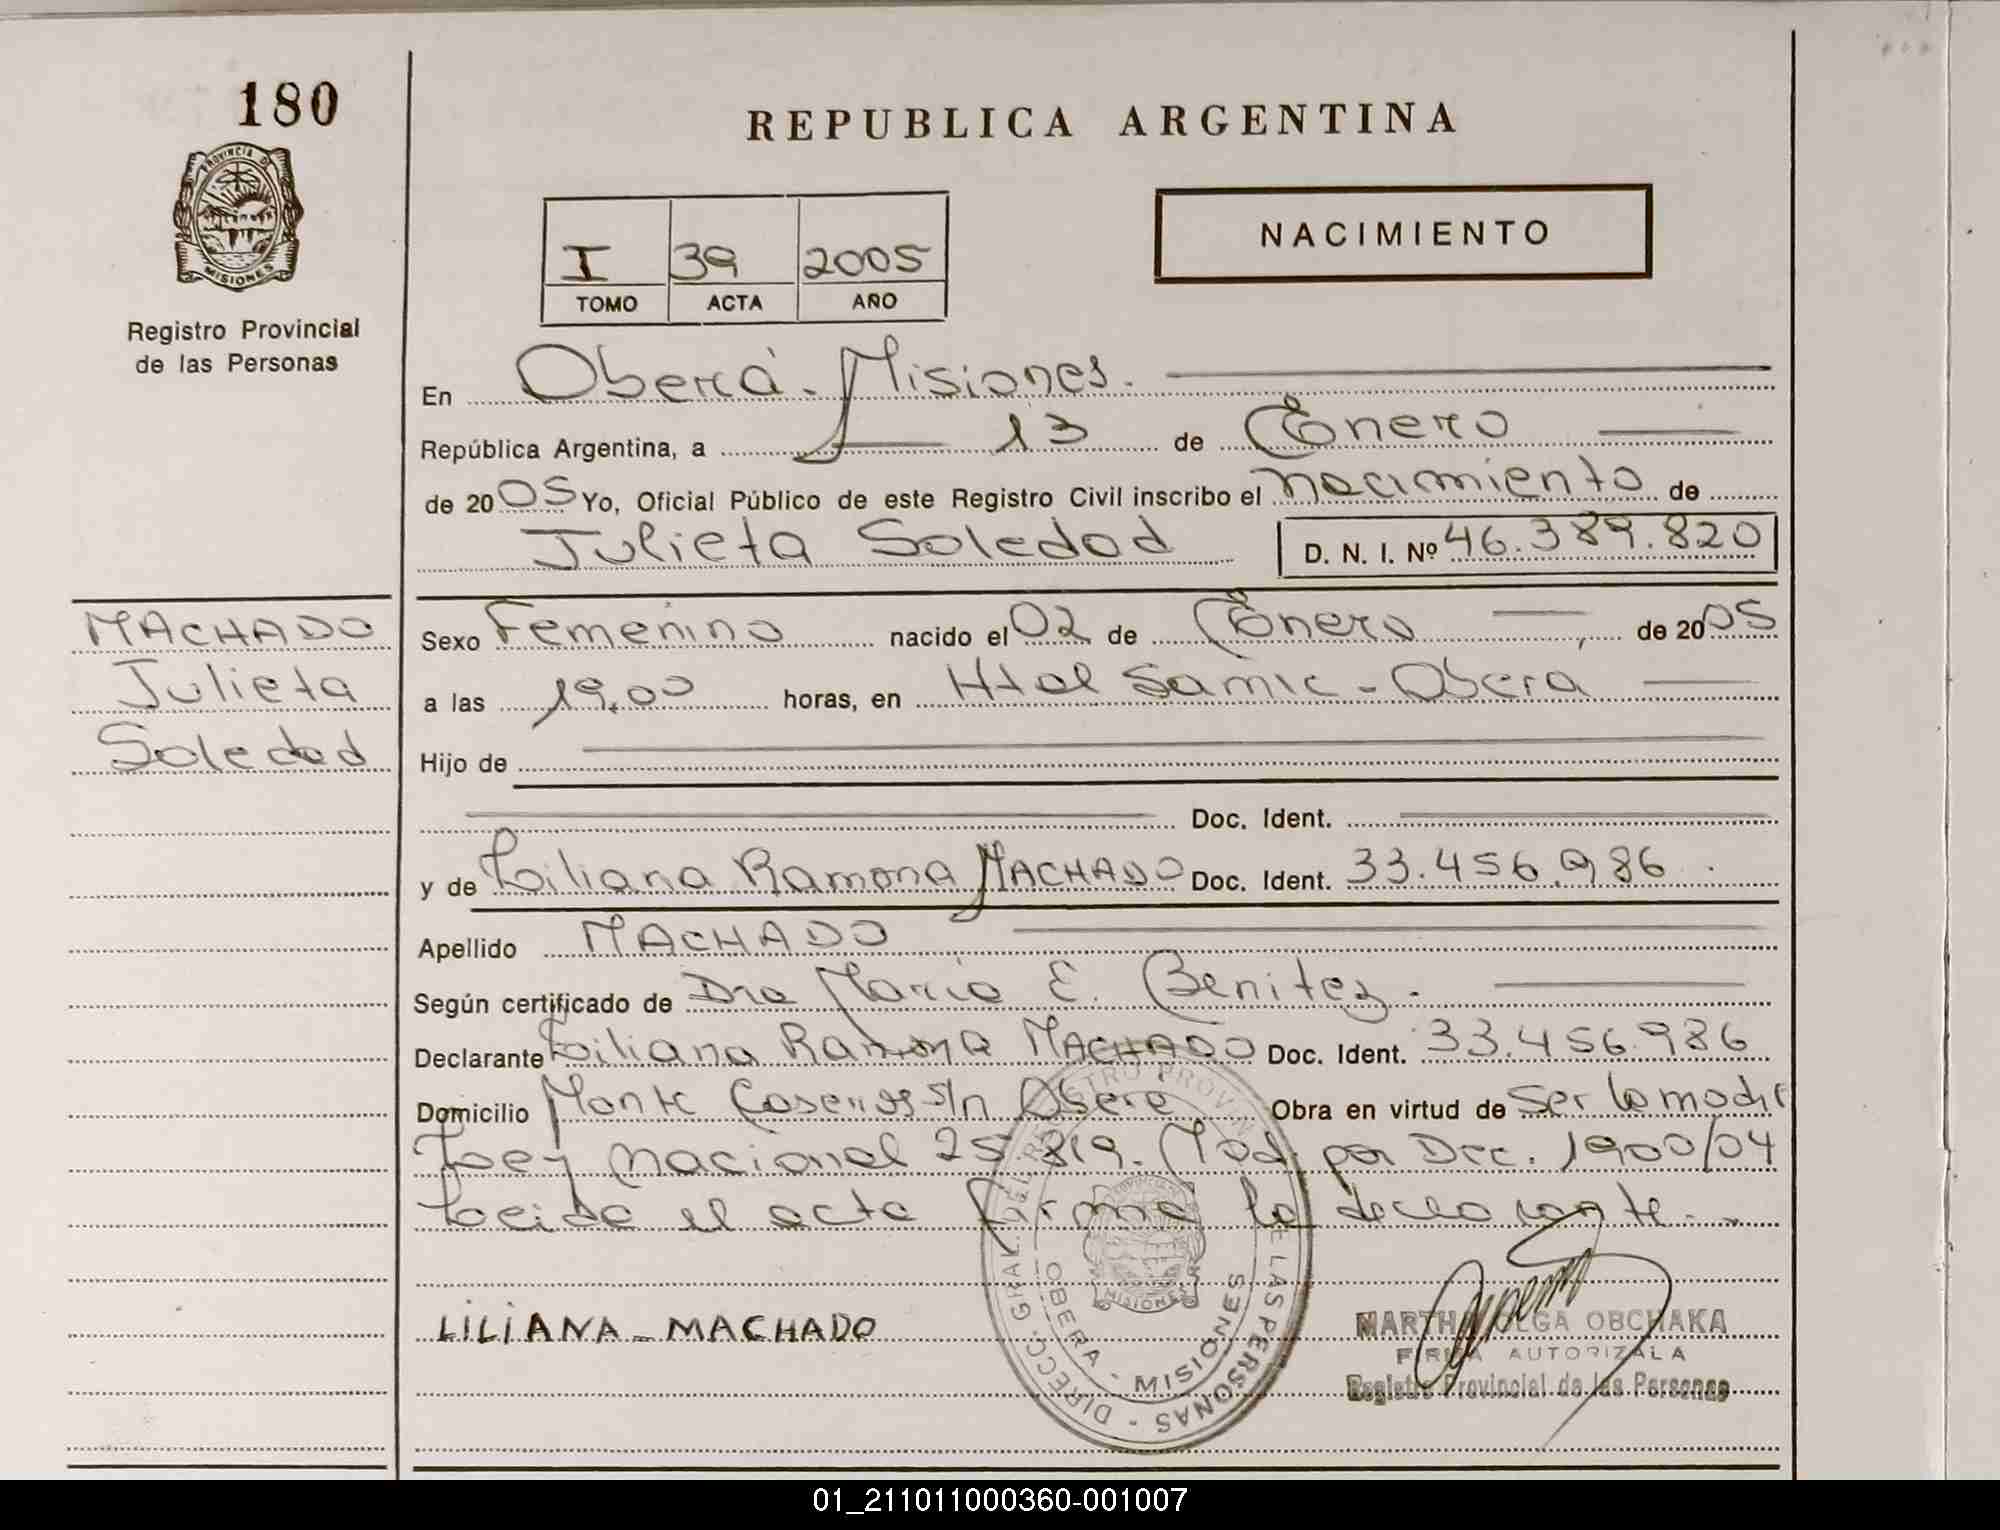 180
REPUBLICA ARGENTINA
PROVINCIA D
MISIONES
Registro Provincial
de las Personas
I 39 2005
TOMO ACTA AÑO
NACIMIENTO
En Oberá - Misiones.
República Argentina, a 13 de Enero
de 2005 Yo, Oficial Público de este Registro Civil inscribo el nacimiento de
Julieta Soledad D. N. I. Nº 46.389.820
MACHADO
Julieta
Soledad
Sexo Femenino nacido el 02 de Enero, de 2005
a las 19,00 horas, en Htal Samic - Obera
Hijo de
Doc. Ident.
y de Liliana Ramona MACHADO Doc. Ident. 33.456.986.
Apellido MACHADO
Según certificado de Dra Maria E. Benitez.
Declarante Liliana Ramona MACHADO Doc. Ident. 33.456.986
Domicilio Monte Caseros s/n Obera Obra en virtud de ser la madre
Ley Nacional 25.819. Mod. por Dec. 1900/04
Leida el acta firma la declarante.
LILIANA - MACHADO
DIRECC. GRAL. DEL REGISTRO PROVIN DE LAS PERSONAS
OBERA - MISIONES
MISIONES
MARTHA OLGA OBCHAKA
FIRMA AUTORIZADA
Registro Provincial de las Personas
01_211011000360-001007